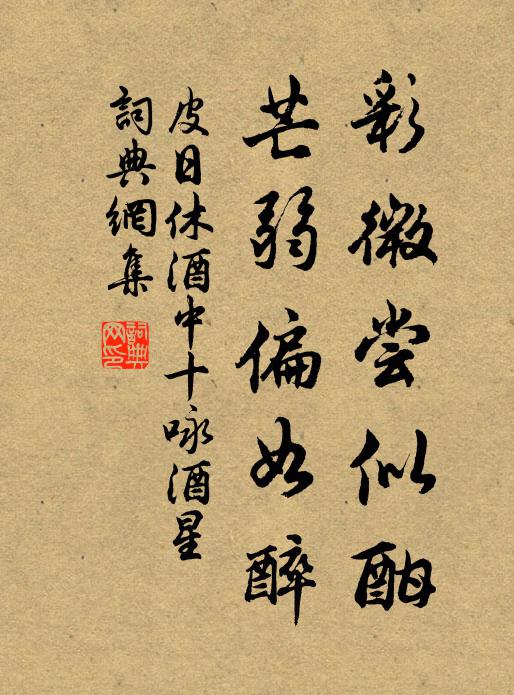 彩微尝似酣
芒弱偏如醉
皮日休酒中十咏酒星
詞典網集
詞典
网印